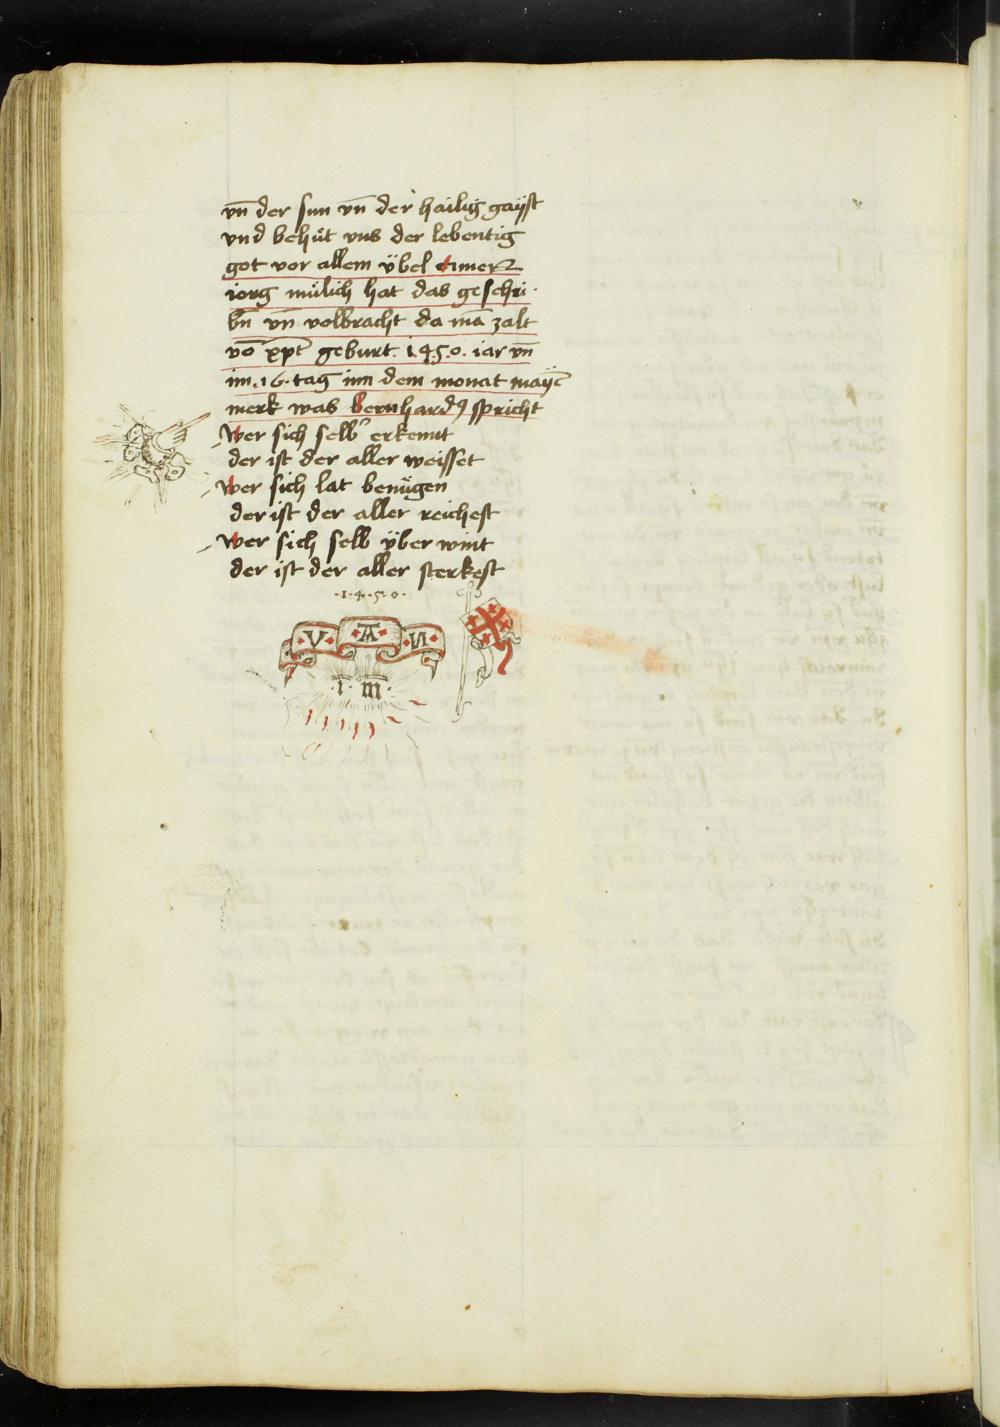 vn̄ der sun vn̄ der hailig gaÿst
vnd behüt vns der lebentig
got vor allem übel amen
iorg mülich hat das geschri·
bn̄ vn̄ volbracht da mā zalt
vō xp̄i geburt · 1·4·5·0· iar vn̄
im · 16 · tag inn dem monat maÿ
merk was bernhardꝰ spricht
Wer sich selb erkennt
der ist der aller weisset
Wer sich lat benügen
der ist der aller reichest
Wer sich selb über wint
der ist der aller sterkest
·1·4·5·0·
·V· ·A· ·N·
·I· m